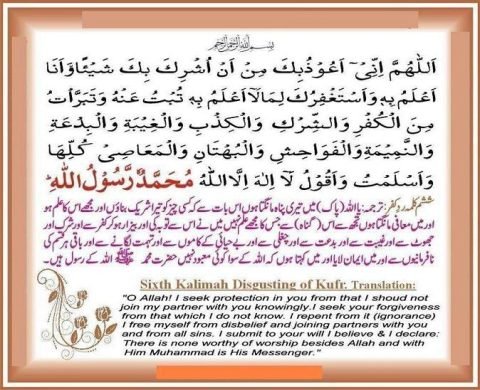 بِسْمِ اللّٰهِ الرَّحْمٰنِ الرَّحِيْمِ
اَللّٰهُمَّ اِنِّیْٓ اَعُوْذُبِكَ مِنْ اَنْ اُشْرِكَ بِكَ شَیْئًا وَّاَنَا
اَعْلَمُ بِهٖ وَاَسْتَغْفِرُكَ لِمَالَآ اَعْلَمُ بِهٖ تُبْتُ عَنْهُ وَتَبَرَّاْتُ
مِنَ الْكُفْرِ وَالشِّرْكِ وَالْكِذْبِ وَالْغِيْبَةِ وَالْبِدْعَةِ
وَالنَّمِيْمَةِ وَالْفَوَاحِشِ وَالْبُهْتَانِ وَالْمَعَاصِیْ كُلِّهَا
وَاَسْلَمْتُ وَاَقُوْلُ لَآ اِلٰهَ اِلَّا اللّٰهُ مُحَمَّدٌ رَّسُوْلُ اللّٰهِ ؕ
ششم کلمہ ردِ کفر: ترجمہ: یا اللہ (پاک) میں تیری پناہ مانگتا ہوں اس بات سے کہ کسی چیز کو تیرا شریک بناؤں اور مجھے اس کا علم ہو
اور میں معافی مانگتا ہوں تجھ سے اس (گناہ) سے جس کا مجھے علم نہیں میں نے اس سے توبہ کی اور بیزار ہوا کفر سے اور شرک اور
جھوٹ سے اور غیبت سے اور بدعت سے اور چغلی سے اور بے حیائی کے کاموں سے اور تہمت لگانے سے اور باقی ہر قسم کی
نافرمانیوں سے اور میں ایمان لایا اور میں کہتا ہوں کہ اللہ کے سوا کوئی معبود نہیں حضرت محمد ﷺ اللہ کے رسول ہیں۔
Sixth Kalimah Disgusting of Kufr. Translation:
"O Allah! I seek protection in you from that I shoud not
join my partner with you knowingly.I seek your forgiveness
from that which I do not know. I repent from it (ignorance)
I free myself from disbelief and joining partners with you
and from all sins. I submit to your will I believe & I declare:
There is none worthy of worship besides Allah and with
Him Muhammad is His Messenger."